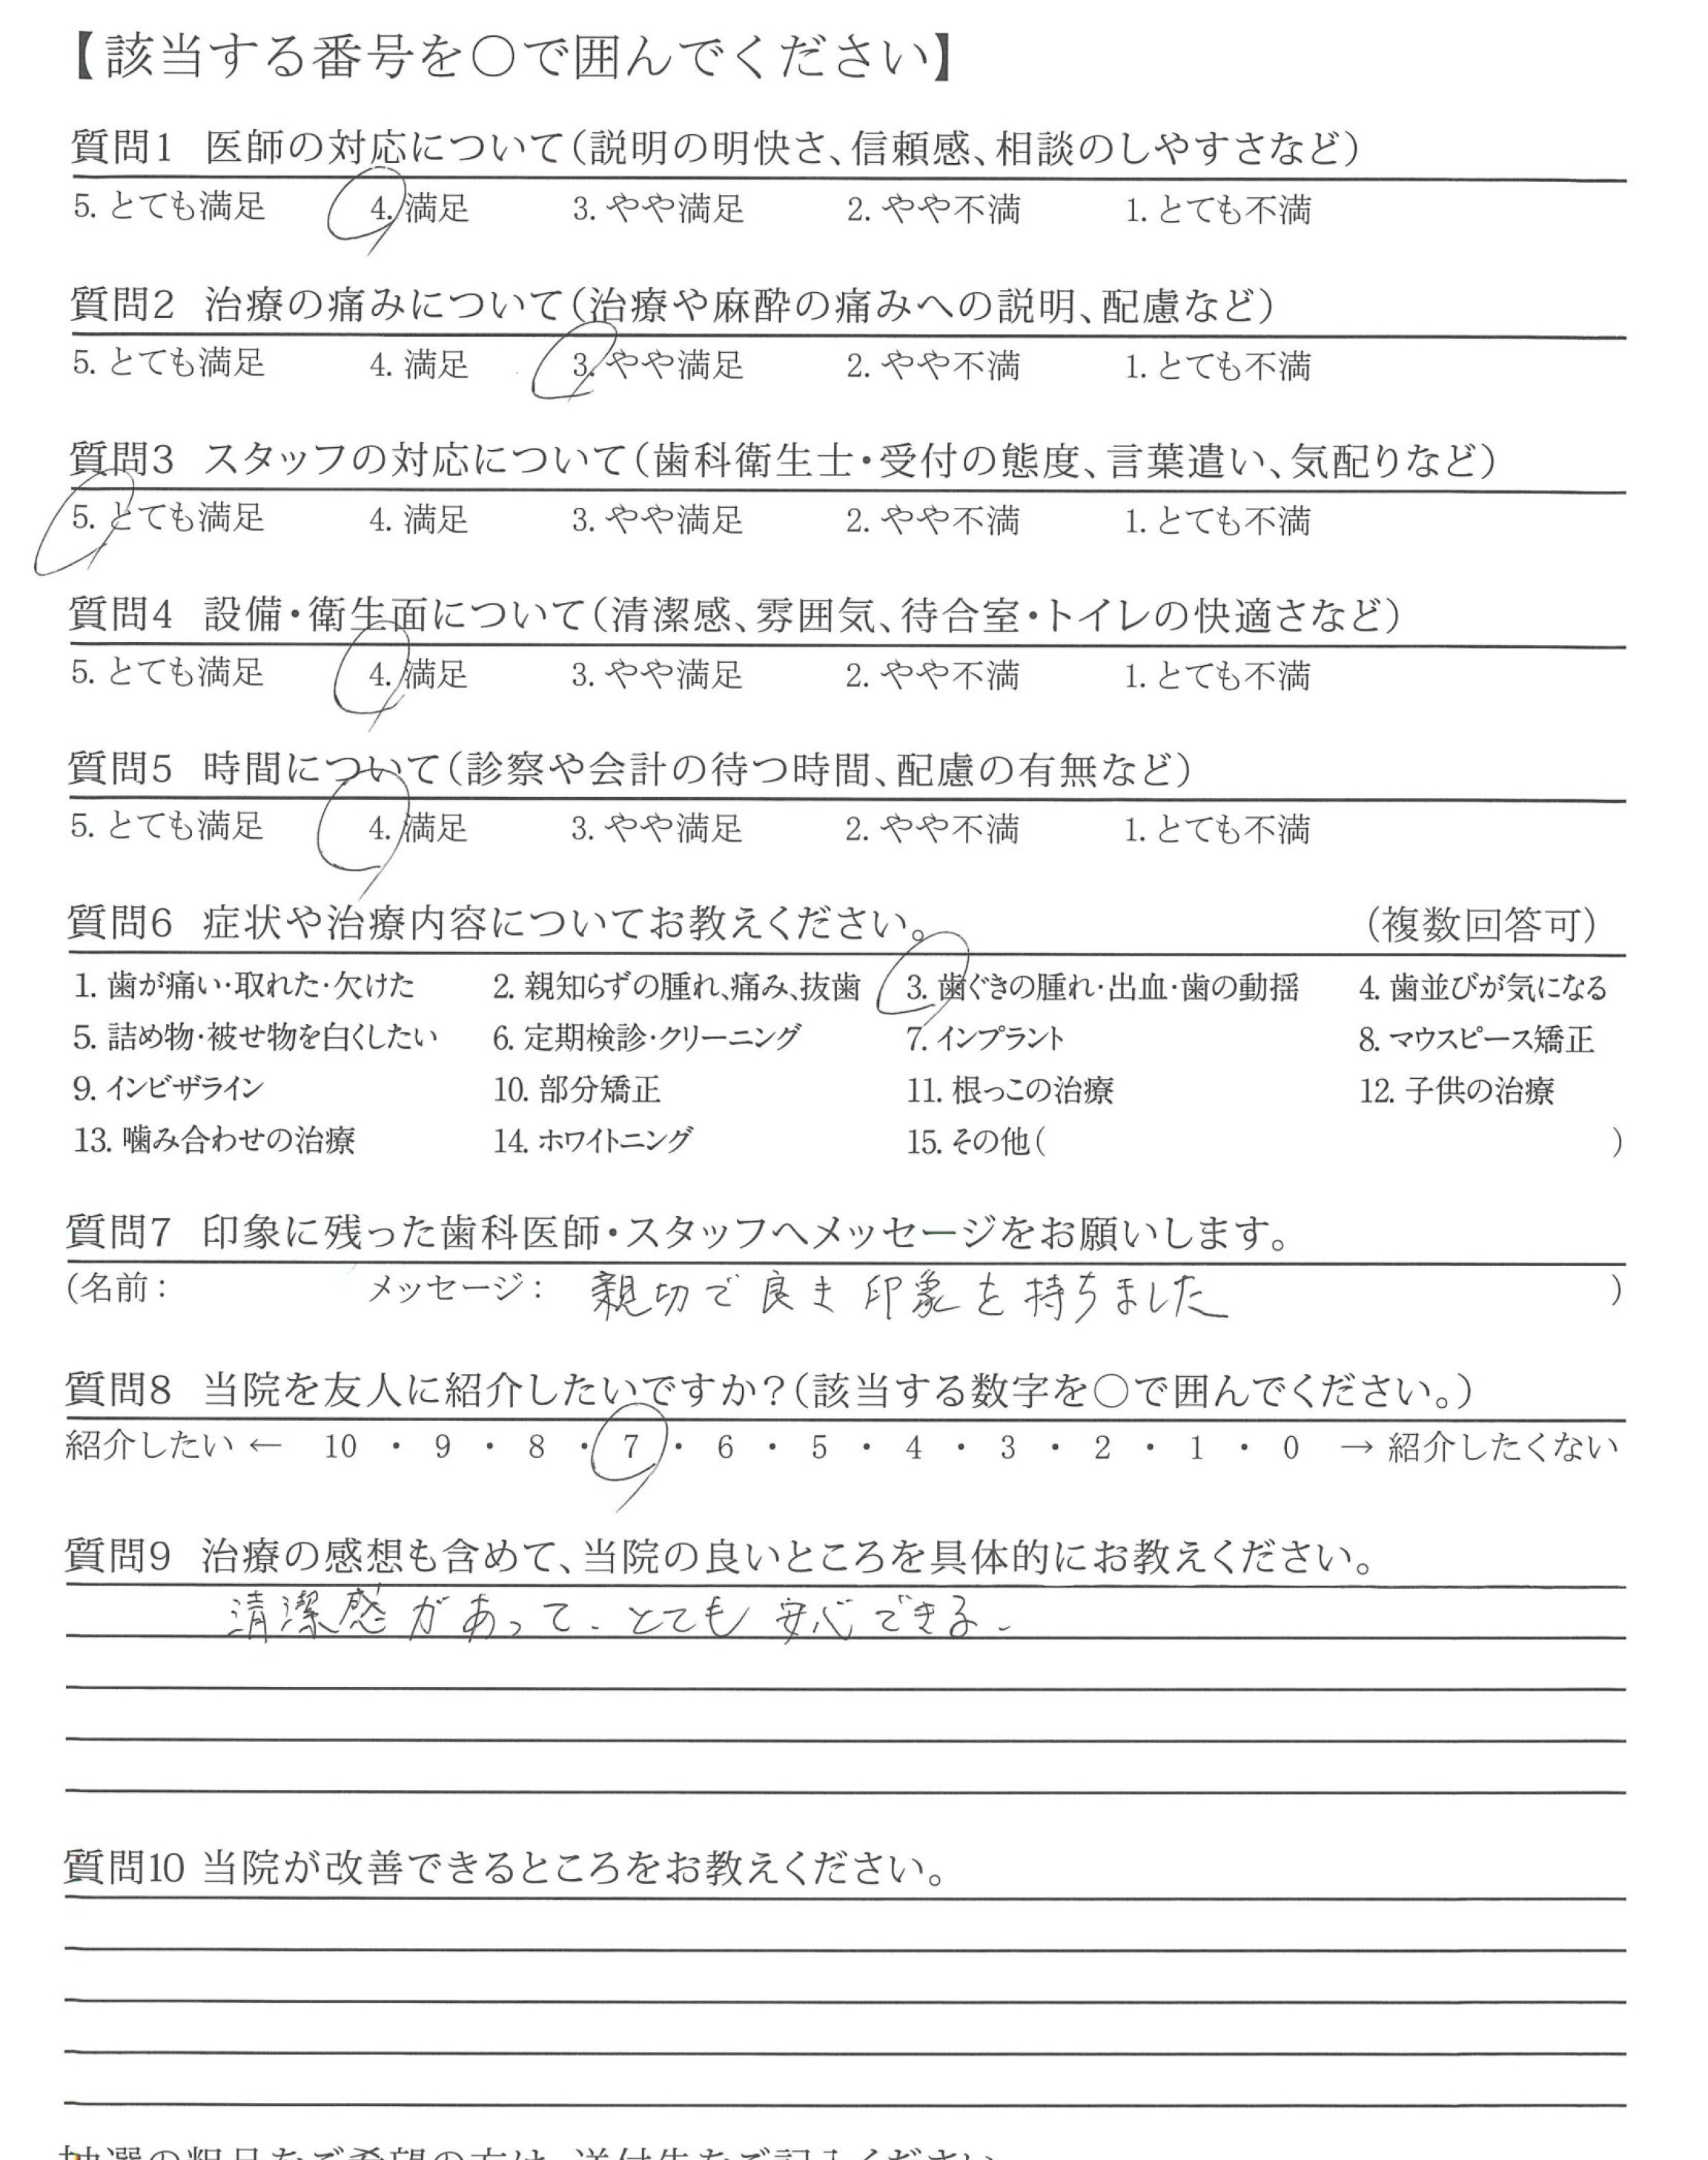 【該当する番号を○で囲んでください】
質問1 医師の対応について(説明の明快さ、信頼感、相談のしやすさなど)
5. とても満足 4. 満足 3. やや満足 2. やや不満 1. とても不満
質問2 治療の痛みについて(治療や麻酔の痛みへの説明、配慮など)
5. とても満足 4. 満足 3. やや満足 2. やや不満 1. とても不満
質問3 スタッフの対応について(歯科衛生士・受付の態度、言葉遣い、気配りなど)
5. とても満足 4. 満足 3. やや満足 2. やや不満 1. とても不満
質問4 設備・衛生面について(清潔感、雰囲気、待合室・トイレの快適さなど)
5. とても満足 4. 満足 3. やや満足 2. やや不満 1. とても不満
質問5 時間について(診察や会計の待つ時間、配慮の有無など)
5. とても満足 4. 満足 3. やや満足 2. やや不満 1. とても不満
質問6 症状や治療内容についてお教えください。 (複数回答可)
1. 歯が痛い・取れた・欠けた 2. 親知らずの腫れ、痛み、抜歯 3. 歯ぐきの腫れ・出血・歯の動揺 4. 歯並びが気になる
5. 詰め物・被せ物を白くしたい 6. 定期検診・クリーニング 7. インプラント 8. マウスピース矯正
9. インビザライン 10. 部分矯正 11. 根っこの治療 12. 子供の治療
13. 噛み合わせの治療 14. ホワイトニング 15. その他( )
質問7 印象に残った歯科医師・スタッフへメッセージをお願いします。
(名前: メッセージ: 親切で良き印象を持ちました )
質問8 当院を友人に紹介したいですか?(該当する数字を○で囲んでください。)
紹介したい ← 10 ・ 9 ・ 8 ・ 7 ・ 6 ・ 5 ・ 4 ・ 3 ・ 2 ・ 1 ・ 0 → 紹介したくない
質問9 治療の感想も含めて、当院の良いところを具体的にお教えください。
清潔感があって、とても安心できる。
質問10 当院が改善できるところをお教えください。
抽選の粗品をご希望の方は、送付先をご記入ください